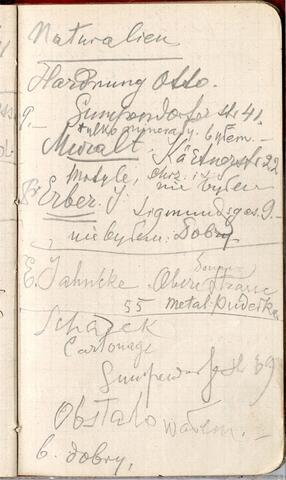 Naturalien
Hardnung Otto.
9. Gumpendorfer str 41.
tylko minerały. byłem. –
Muralt. Kärtnerst. 22
Motyle, chrz. i t.
nie byłem
Erber. J. Sigmundsgas. 9. –
nie byłem. Dobry
E. Jahncke Obere Strasse
55 metal. pudełka
Schasek
Cartonage
39
Obstalowałem. –
b. dobry,